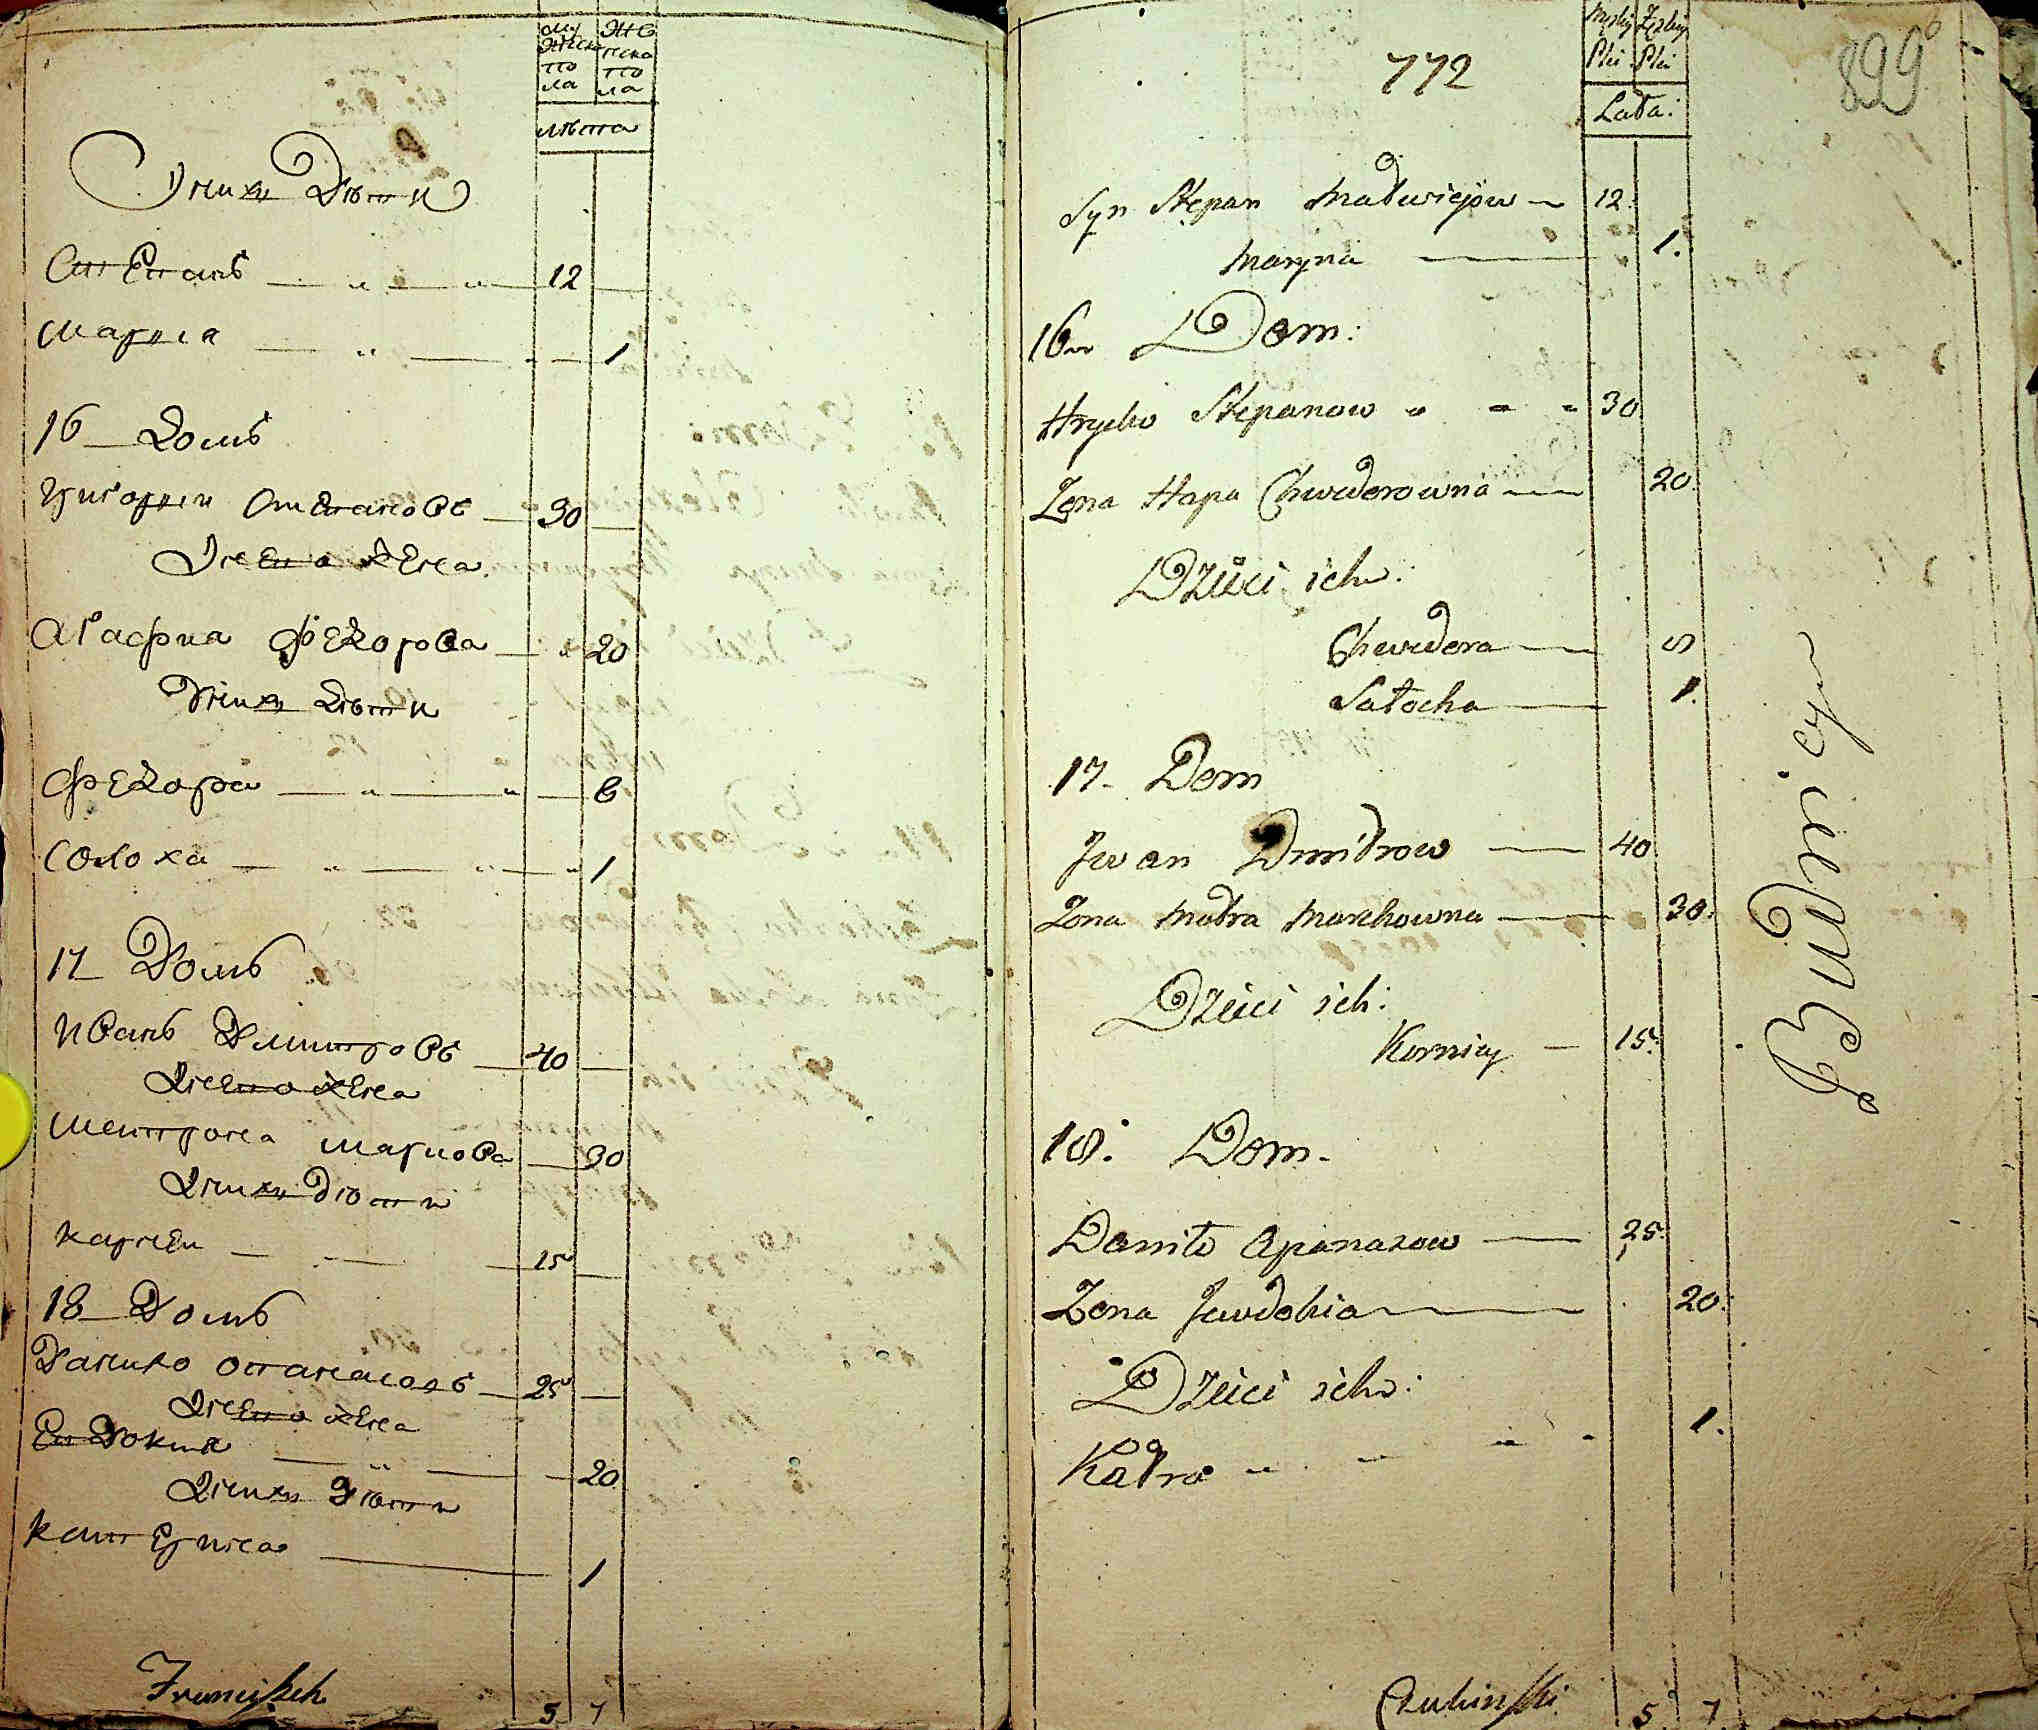 Мужеска пола Женска пола
лѣта
Ихъ Дѣти
Степанъ 12
Марья 1
16 Домъ
Григорей Степановъ 30
Жена его
Агафиа Федорова 20
Ихъ Дѣти
Федора 6
Солоха 1
17 Домъ
Иванъ Дмитровъ 40
Жена его
Матрона Маркова 30
Ихъ Дѣти
Карней 15
18 Домъ
Данило Опанасовъ 25
Жена его
Евдокия 20
Ихъ Дѣти
Катерина 1
Franciszek
5 7
772
899
Męzkiey Płci Zęzkiey Płci
Lata:
Syn Stepan Matwiejow 12
Maryna 1.
16 Dom:
Hryćko Stepanow 30
Zona Hapa Chwedorowna 20.
Dzieci ich:
Chwedora 8
Sałocha 1.
17. Dom
Jwan Dmitrow 40
Zona Matra Markowna 30.
Dzieci ich:
Korniey 15.
18. Dom.
Daniło Apanasow 25.
Zona Jewdokia 20.
Dzieci ich:
Katra 1.
5 7